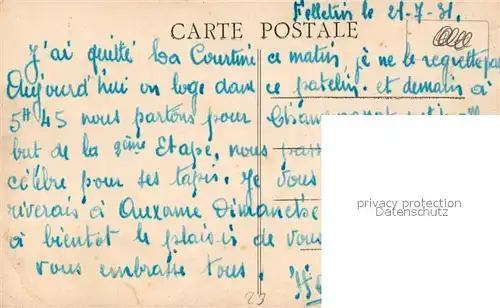 Felletin le 21-7-31.
CARTE POSTALE
J'ai quitté La Courtine ce matin, je ne le regrette pas
Aujourd'hui on loge dans ce patelin. et demain à
5H45 nous partons pour
but de la 2ème Etape, nous
célèbre pour ses tapis. Je vous
riverais à Auxonne Dimanche
à bientôt le plaisir de vous
vous embrasse tous.
privacy protection
Datenschutz
23